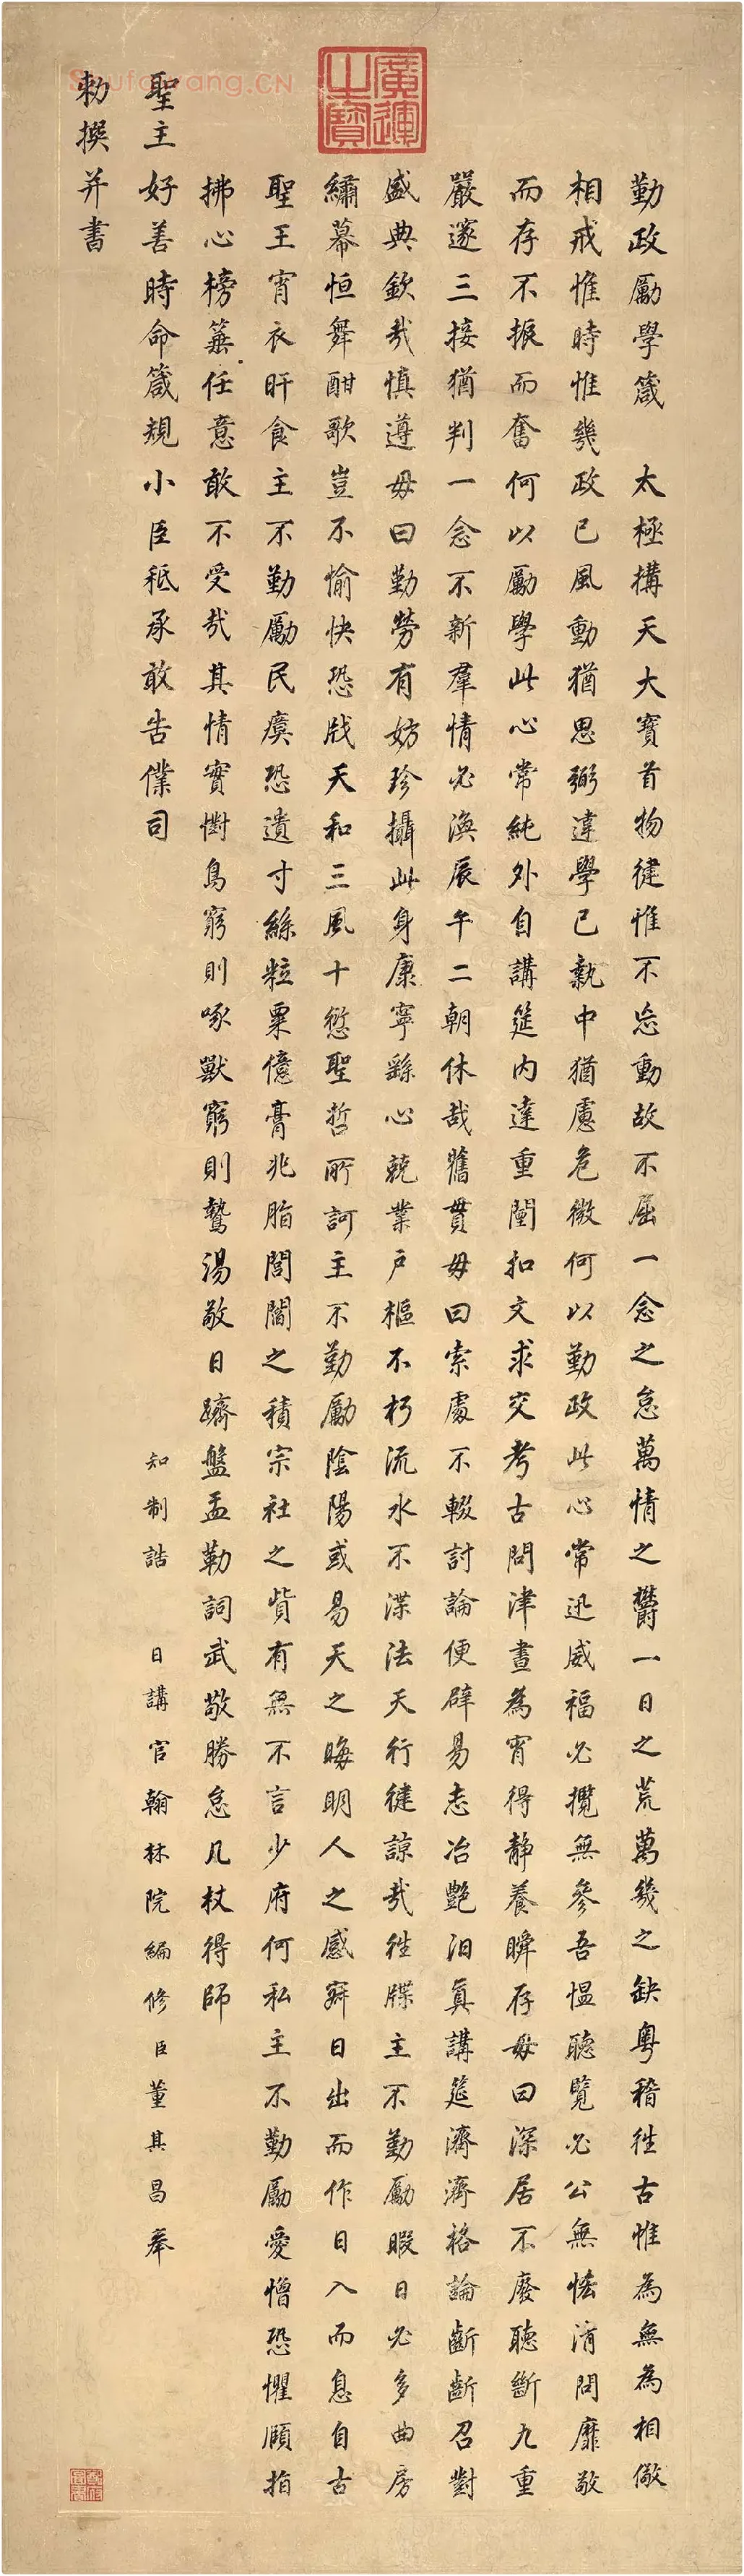 勤政勵學箴 太極搆天大寶首物健惟不息動故不屈一念之怠萬情之欝一日之荒萬幾之缺粵稽徃古惟為無為相儆
相戒惟時惟幾政已風動猶思弼違學已執中猶慮危微何以勤政此心常迅威福必攬無參吾愠聽覽必公無恡清問靡敢
而存不振而奮何以勵學此心常純外自講筵內達重闉扣文求交考古問津晝為宵得靜養瞬存毋曰深居不廢聽斷九重
嚴邃三接猶判一念不新羣情必渙辰午二朝休哉舊貫毋曰索處不輟討論便辟易志冶艷汨真講筵濟濟格論齗齗召對
盛典欽哉慎遵毋曰勤勞有妨珍攝此身康寧繇心兢業戶樞不朽流水不渫法天行健諒哉徃牒主不勤勵暇日必多曲房
繡幕恒舞酣歌豈不愉快恐戕天和三風十愆聖哲所訶主不勤勵陰陽或易天之晦明人之感寐日出而作日入而息自古
聖王宵衣旰食主不勤勵民瘼恐遺寸絲粒粟億膏兆脂閭閻之積宗社之貲有無不言少府何私主不勤勵愛憎恐懼頤指
拂心榜箠任意敢不受哉其情實懟鳥窮則啄獸窮則驁湯敬日躋盤盂勒詞武敬勝怠几杖得師
聖主好善時命箴規小臣秪承敢告僕司 知制誥 日講官翰林院編修臣董其昌奉
勅撰并書
廣運之寶
Soufawang.CN